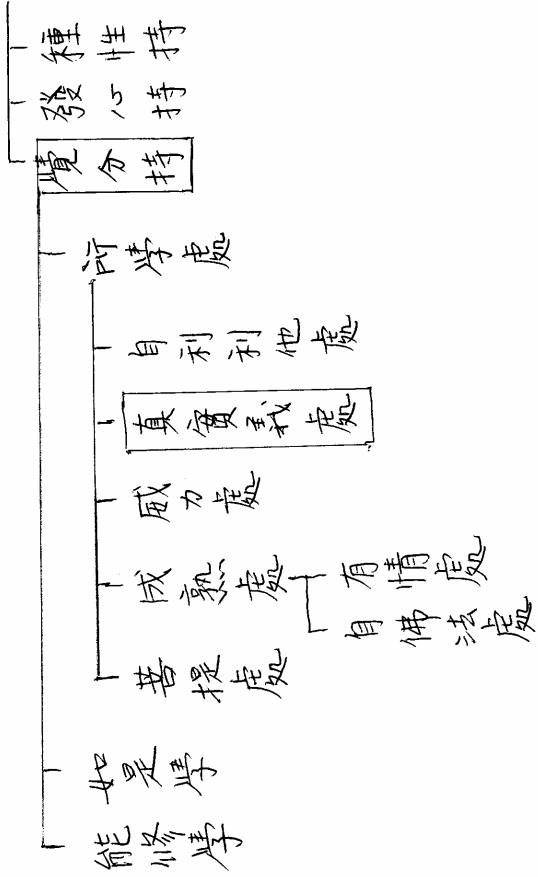 種性持
發心持
覺分持
所學處
自利利他處
真實義處
威力處
成熟處
有情處
自佛法處
菩提處
如是學
能修學